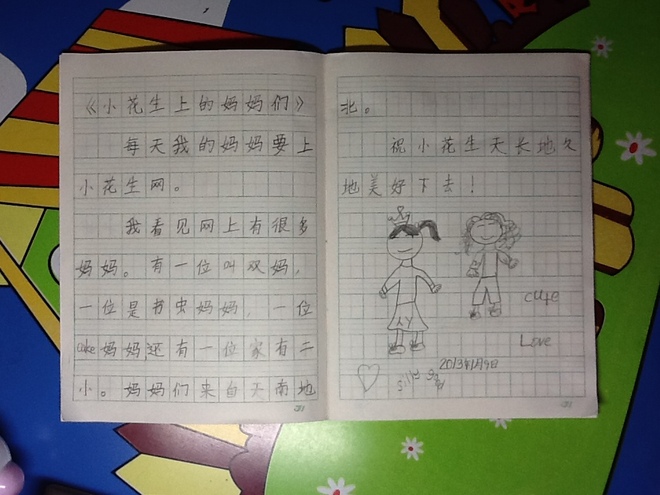 《小花生上的妈妈们》
每天我的妈妈要上
小花生网。
我看见网上有很多
妈妈。有一位叫双妈,
一位是书虫妈妈,一位
cake妈妈,还有一位家有二
小。妈妈们来自天南地
北。
祝小花生天长地久
地美好下去!
cute
Love
2013年1月9日